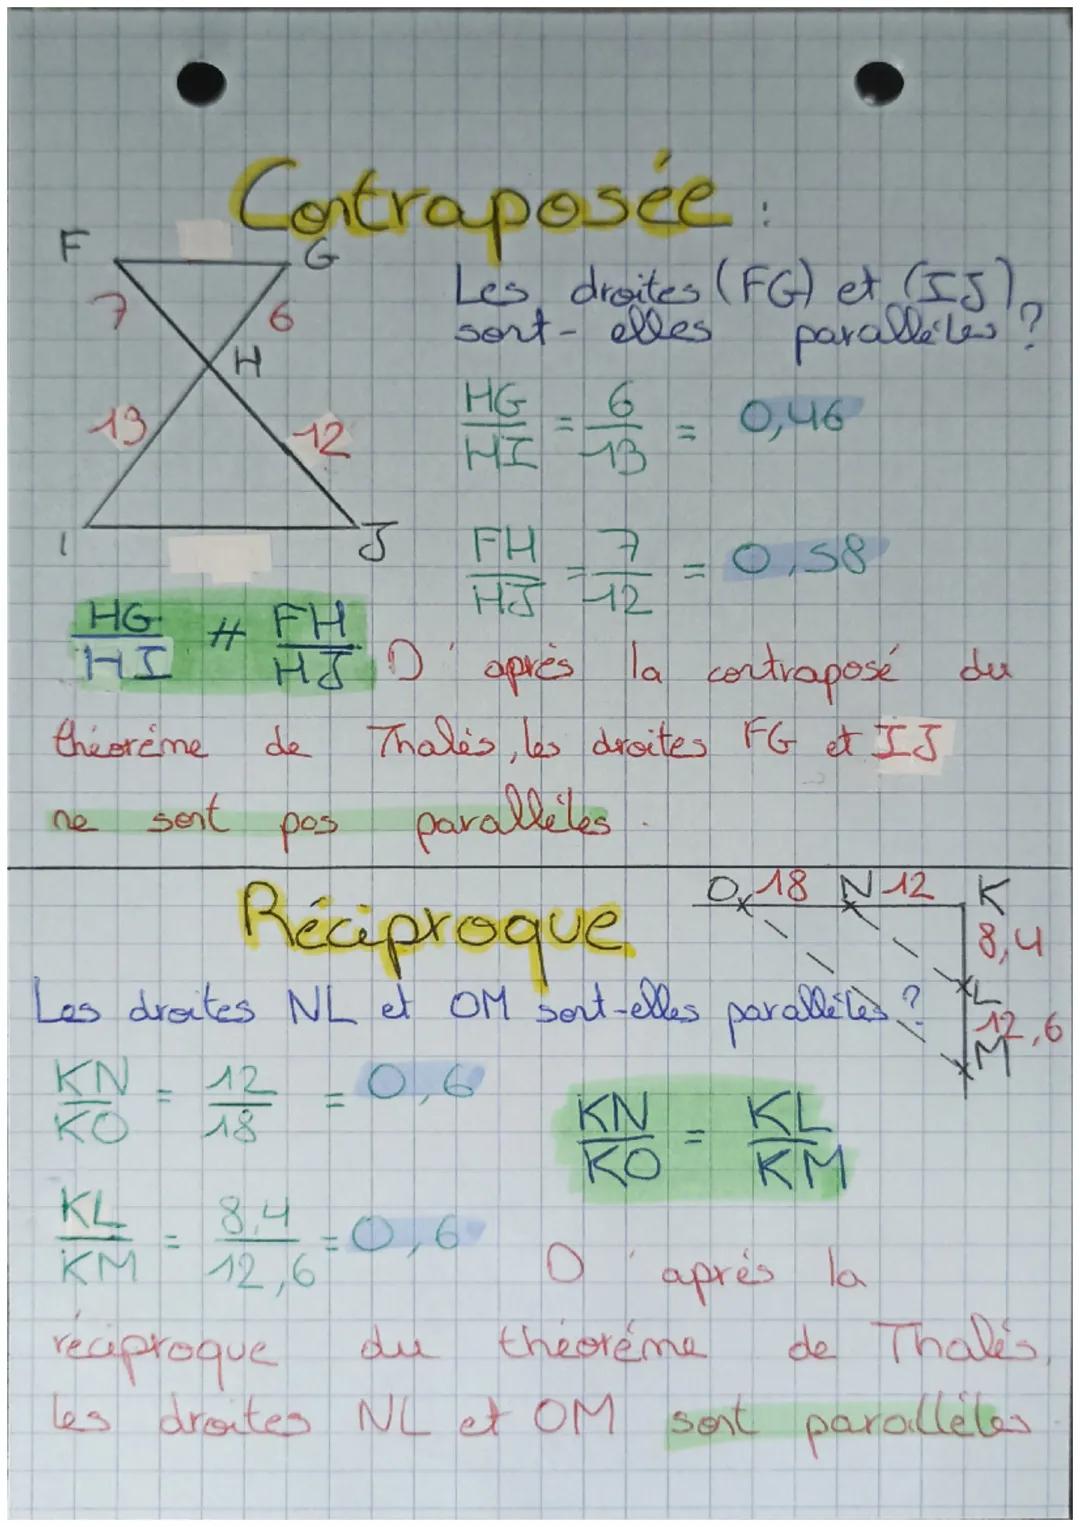 Contraposée :
F
G
7
6
H
13
12
I
J
Les droites (FG) et (IJ)
sont-elles parallèles ?
HG/HI = 6/13 = 0,46
FH/HJ = 7/12 = 0,58
HG/HI ≠ FH/HJ
D'après la contraposé du
théorème de Thalès, les droites FG et IJ
ne sont pas parallèles.
Réciproque
O 18 N 12 K
8,4
L
12,6
M
Les droites NL et OM sont-elles parallèles ?
KN/KO = 12/18 = 0,6
KN/KO = KL/KM
KL/KM = 8,4/12,6 = 0,6
D'après la
réciproque du théorème de Thalès,
les droites NL et OM sont parallèles